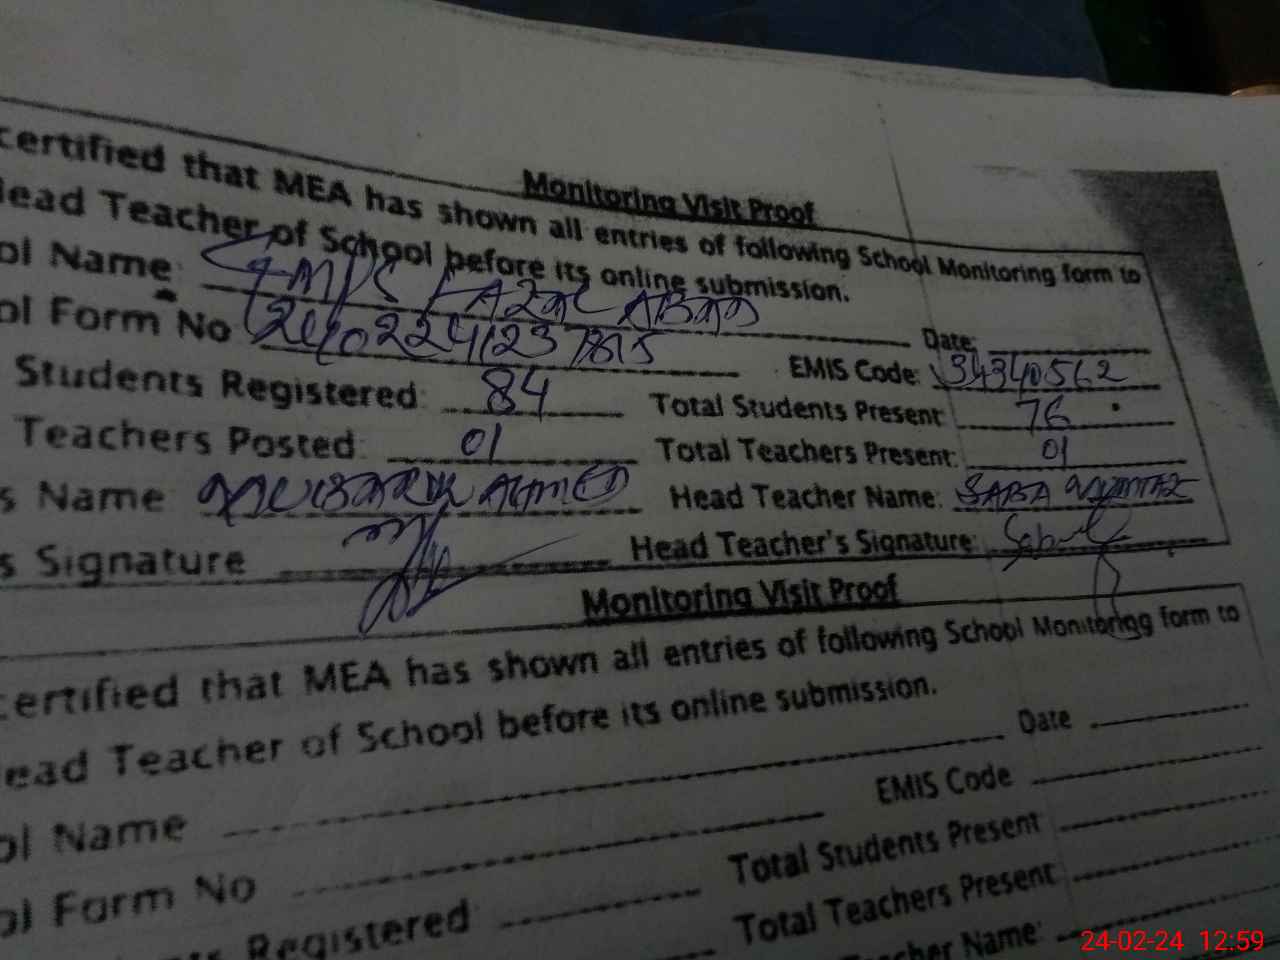 Monitoring Visit Proof
certified that MEA has shown all entries of following School Monitoring form to
Head Teacher of School before its online submission.
ol Name: GMPS FAZAL ABAD Date:
ol Form No EMIS Code: 34340562
Students Registered: 84 Total Students Present: 76
Teachers Posted: 01 Total Teachers Present: 01
s Name MUBARIK AHMED Head Teacher Name: SABA MUMTAZ
s Signature Head Teacher's Signature:
Monitoring Visit Proof
certified that MEA has shown all entries of following School Monitoring form to
Head Teacher of School before its online submission.
ol Name Date
ol Form No EMIS Code
ts Registered Total Students Present
Total Teachers Present
acher Name:
24-02-24 12:59